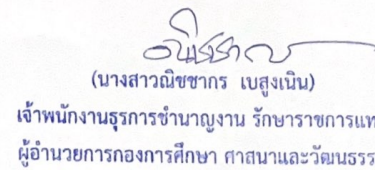 (นางสาวณิชชากร เบสูงเนิน)
เจ้าพนักงานธุรการชำนาญงาน รักษาราชการแท
ผู้อำนวยการกองการศึกษา ศาสนาและวัฒนธรร